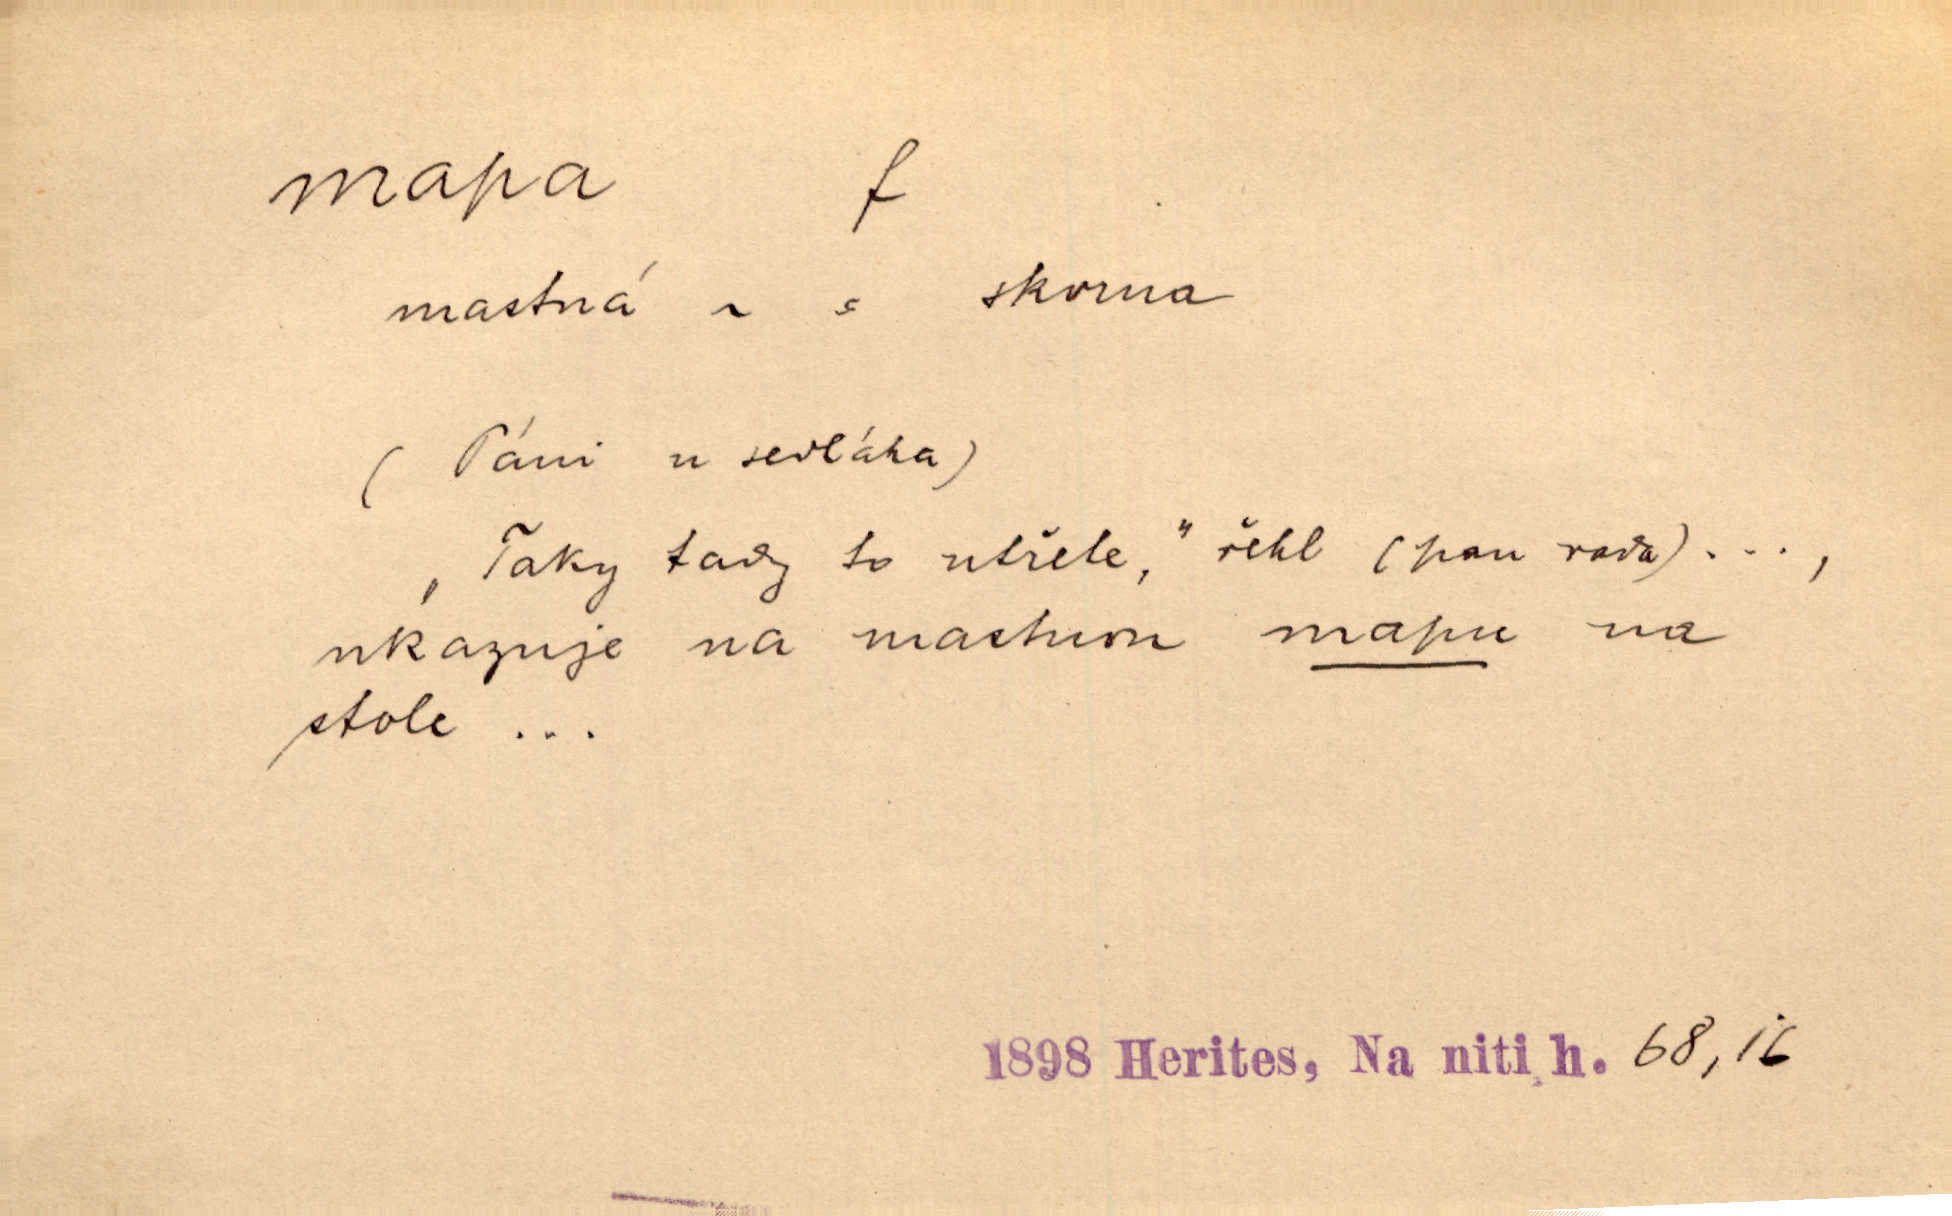 mapa f
mastná ~ = skvrna
( Páni u sedláka)
„Taky tady to utřete," řekl (pan rada) . . . ,
ukazuje na mastnou mapu na
stole ...
1898 Herites, Na niti h. 68, i6